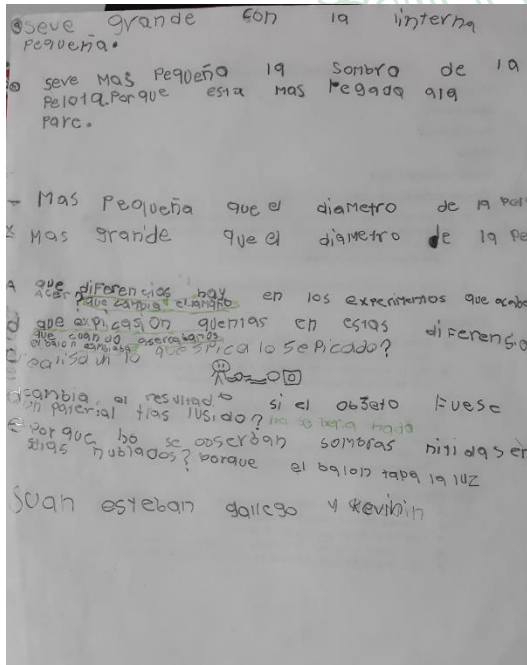 seve grande con la linterna
pequeña.
seve mas pequeño la sombra de la
pelota. Porque esta mas pegada ala
pare.
- Mas pequeña que el diametro de la
x Mas grande que el diametro de la
que diferencias hay en los experimentos que
que cambia el tamaño
que expicasion quemias en estas diferensio
que cuando asercabamos
el balon cambiaba
un lo que spica lo sepicado?
cambia el resultado si el obseto Fuese
material tras lusido? no se bera nada
e Por que no se obserban sombras nitidas en
dias nublados? borque el balon tapa la luz
Suan esteban gallego y kevinin